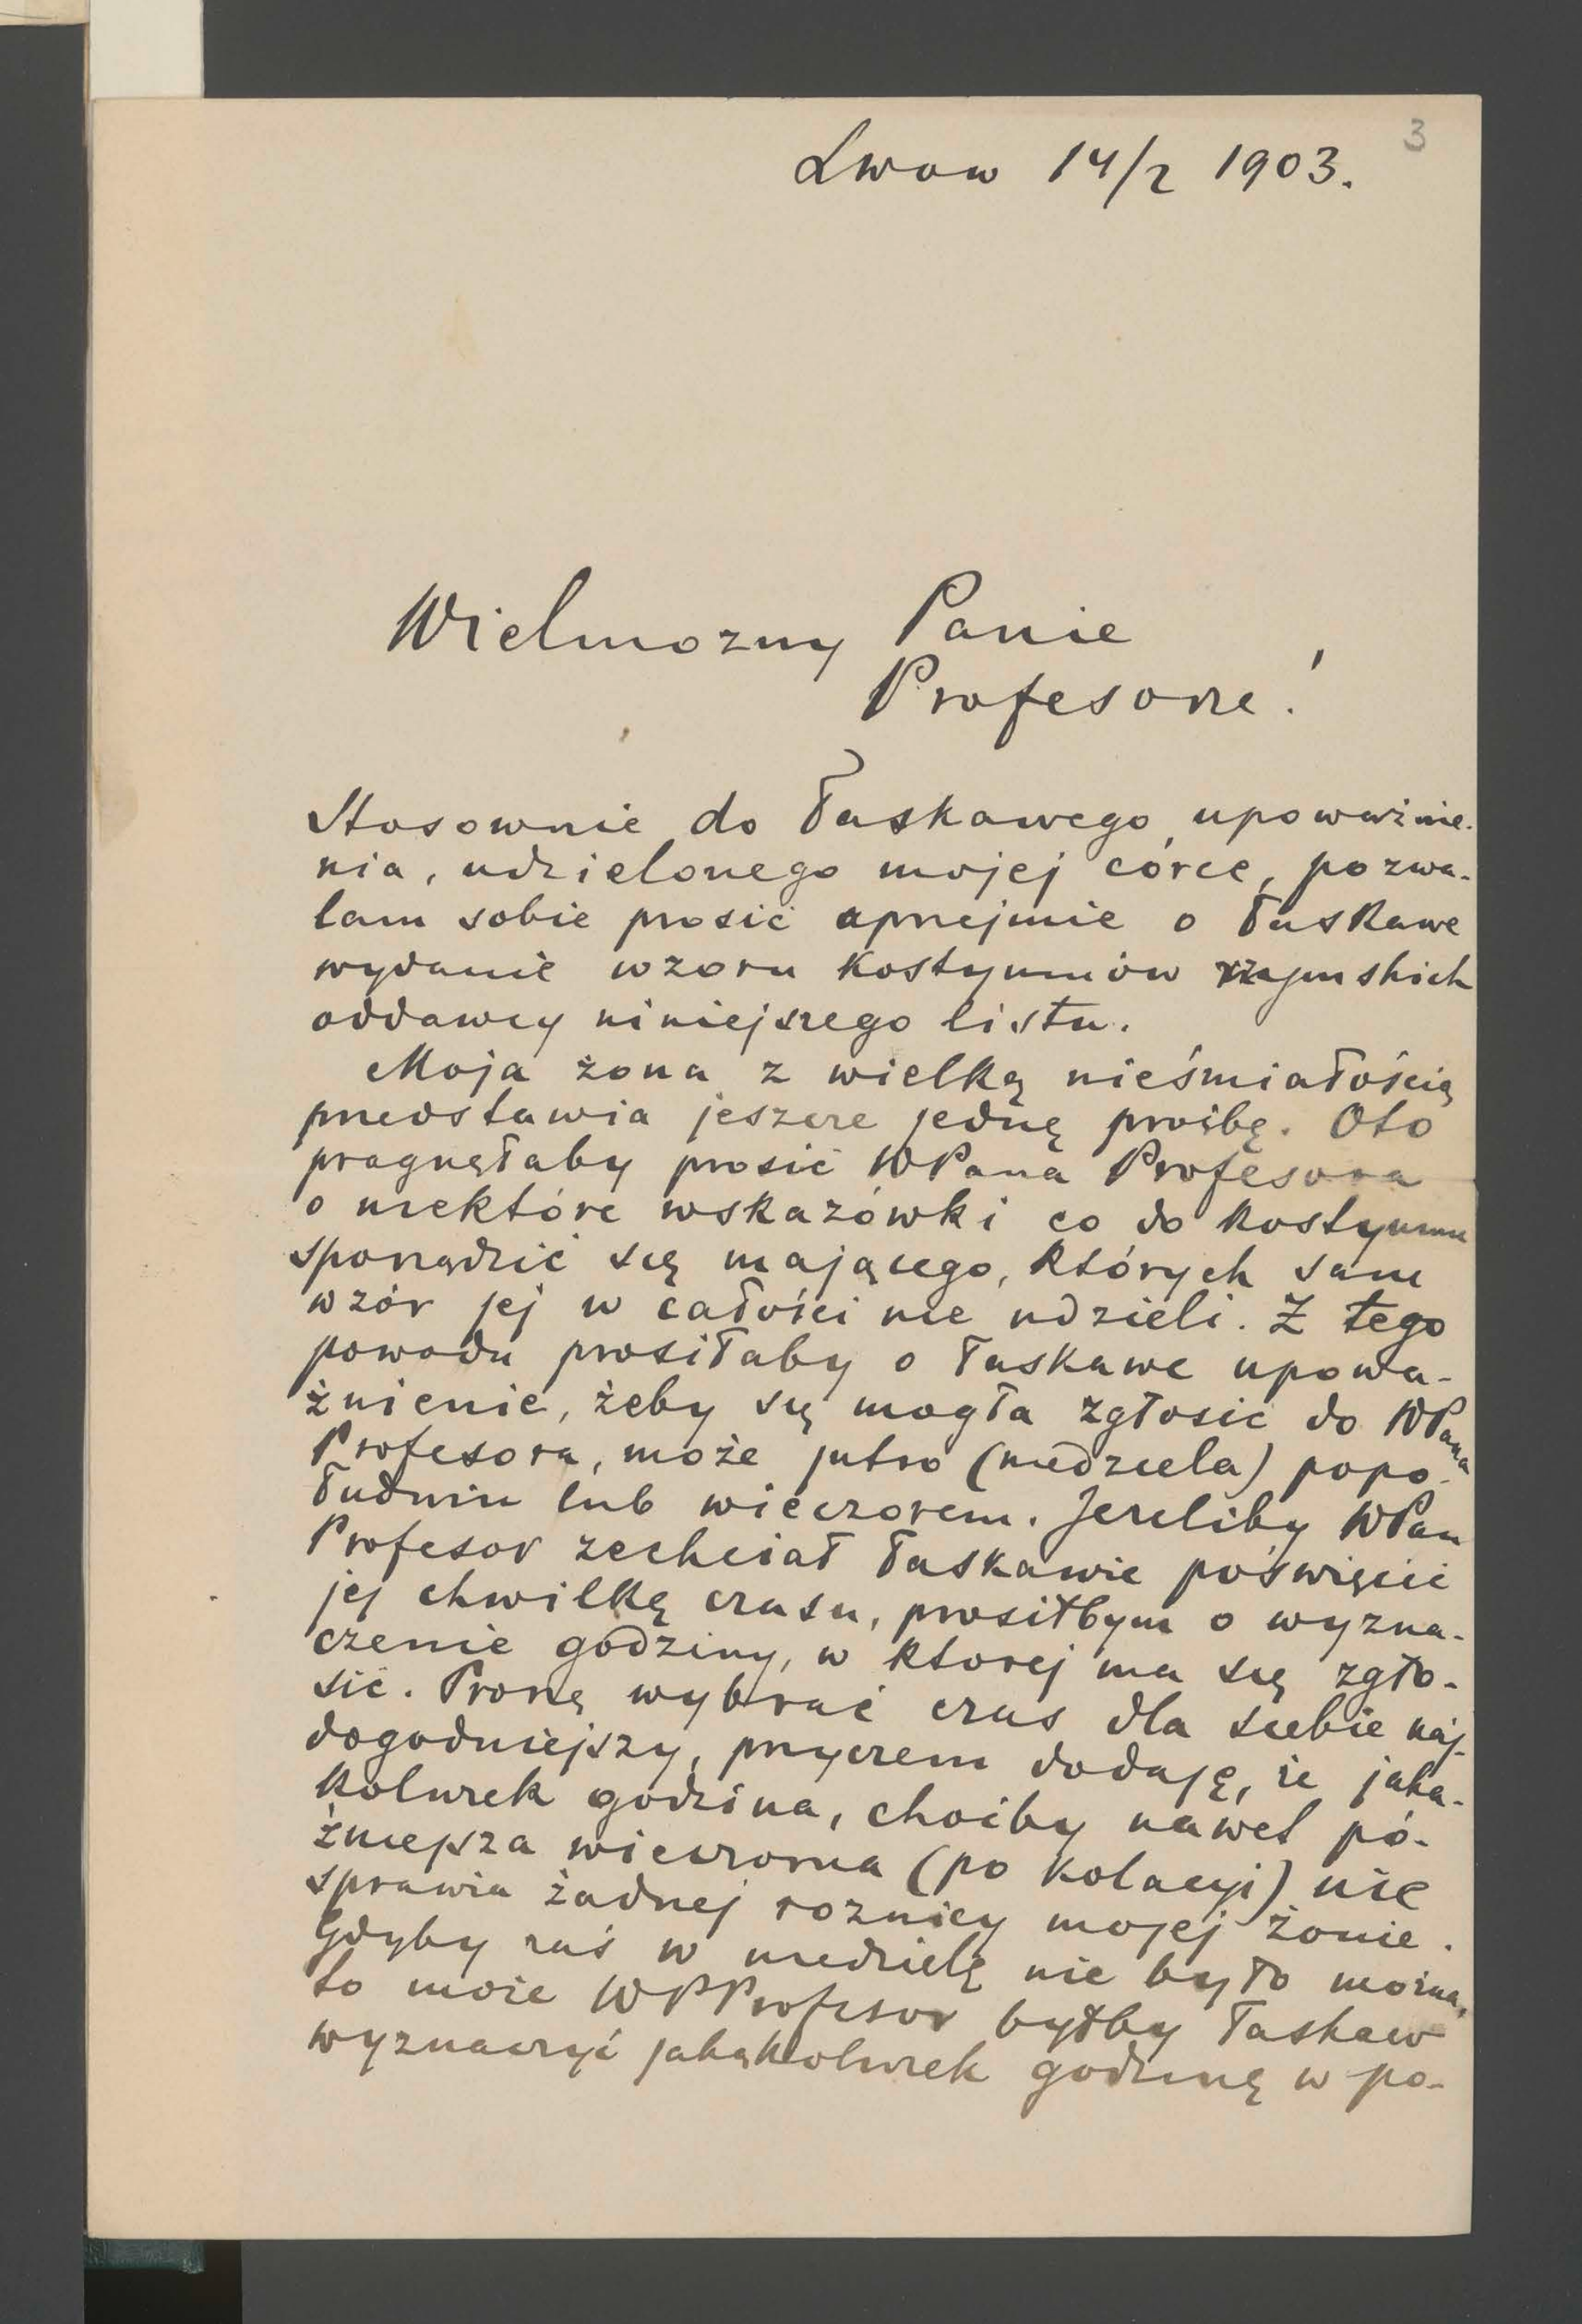 3
Lwow 14/2 1903.
Wielmozny Panie
Profesorze!
Stosownie do łaskawego upoważnie-
nia, udzielonego mojej córce, pozwa-
lam sobie prosić uprzejmie o łaskawe
wydanie wzoru kostyumów rzymskich
oddawcy niniejszego listu.
Moja żona z wielką nieśmiałością
przedstawia jeszcze jednę prośbę. Oto
pragnęłaby prosić WPana Profesora
o niektóre wskazówki co do kostyumu
sporządzić się mającego, których sam
wzór jej w całości nie udzieli. Z tego
powodu prosiłaby o łaskawe upowa-
żnienie, żeby się mogła zgłosić do WPana
Profesora, może jutro (niedziela) popo-
łudniu lub wieczorem. Jezeliby WPan
Profesor zechciał łaskawie poświęcić
jej chwilkę czasu, prosiłbym o wyzna-
czenie godziny, w ktorej ma się zgło-
sić. Proszę wybrać czas dla siebie naj-
dogodniejszy, przyczem dodaję, że jaka-
kolwiek godzina, choćby nawet pó-
żniejsza wieczorna (po kolacyi) nie
sprawia żadnej roznicy mojej żonie.
Gdyby zaś w niedzielę nie było można,
to może WPProfesor byłby łaskaw
wyznaczyć jakąkolwiek godzinę w po-